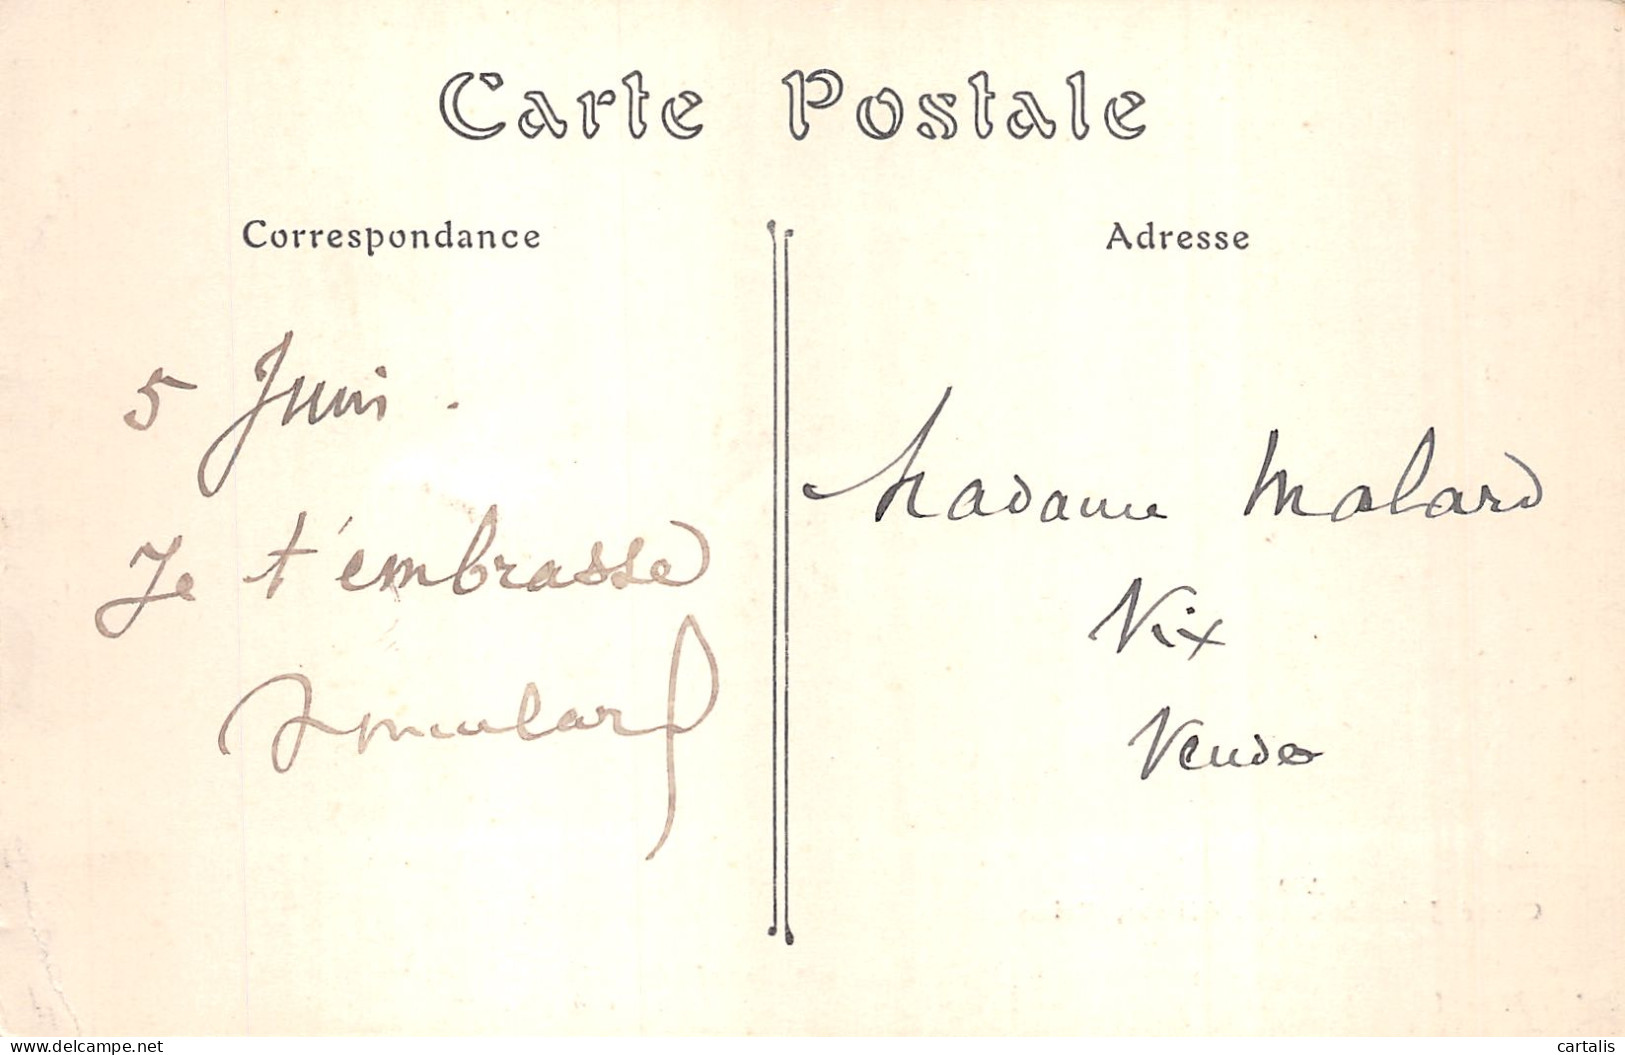 Carte Postale
Correspondance
Adresse
5 Juin.
Je t'embrasse
Malard
Madame Malard
Vix
Vendée
delcampe.net
cartalis